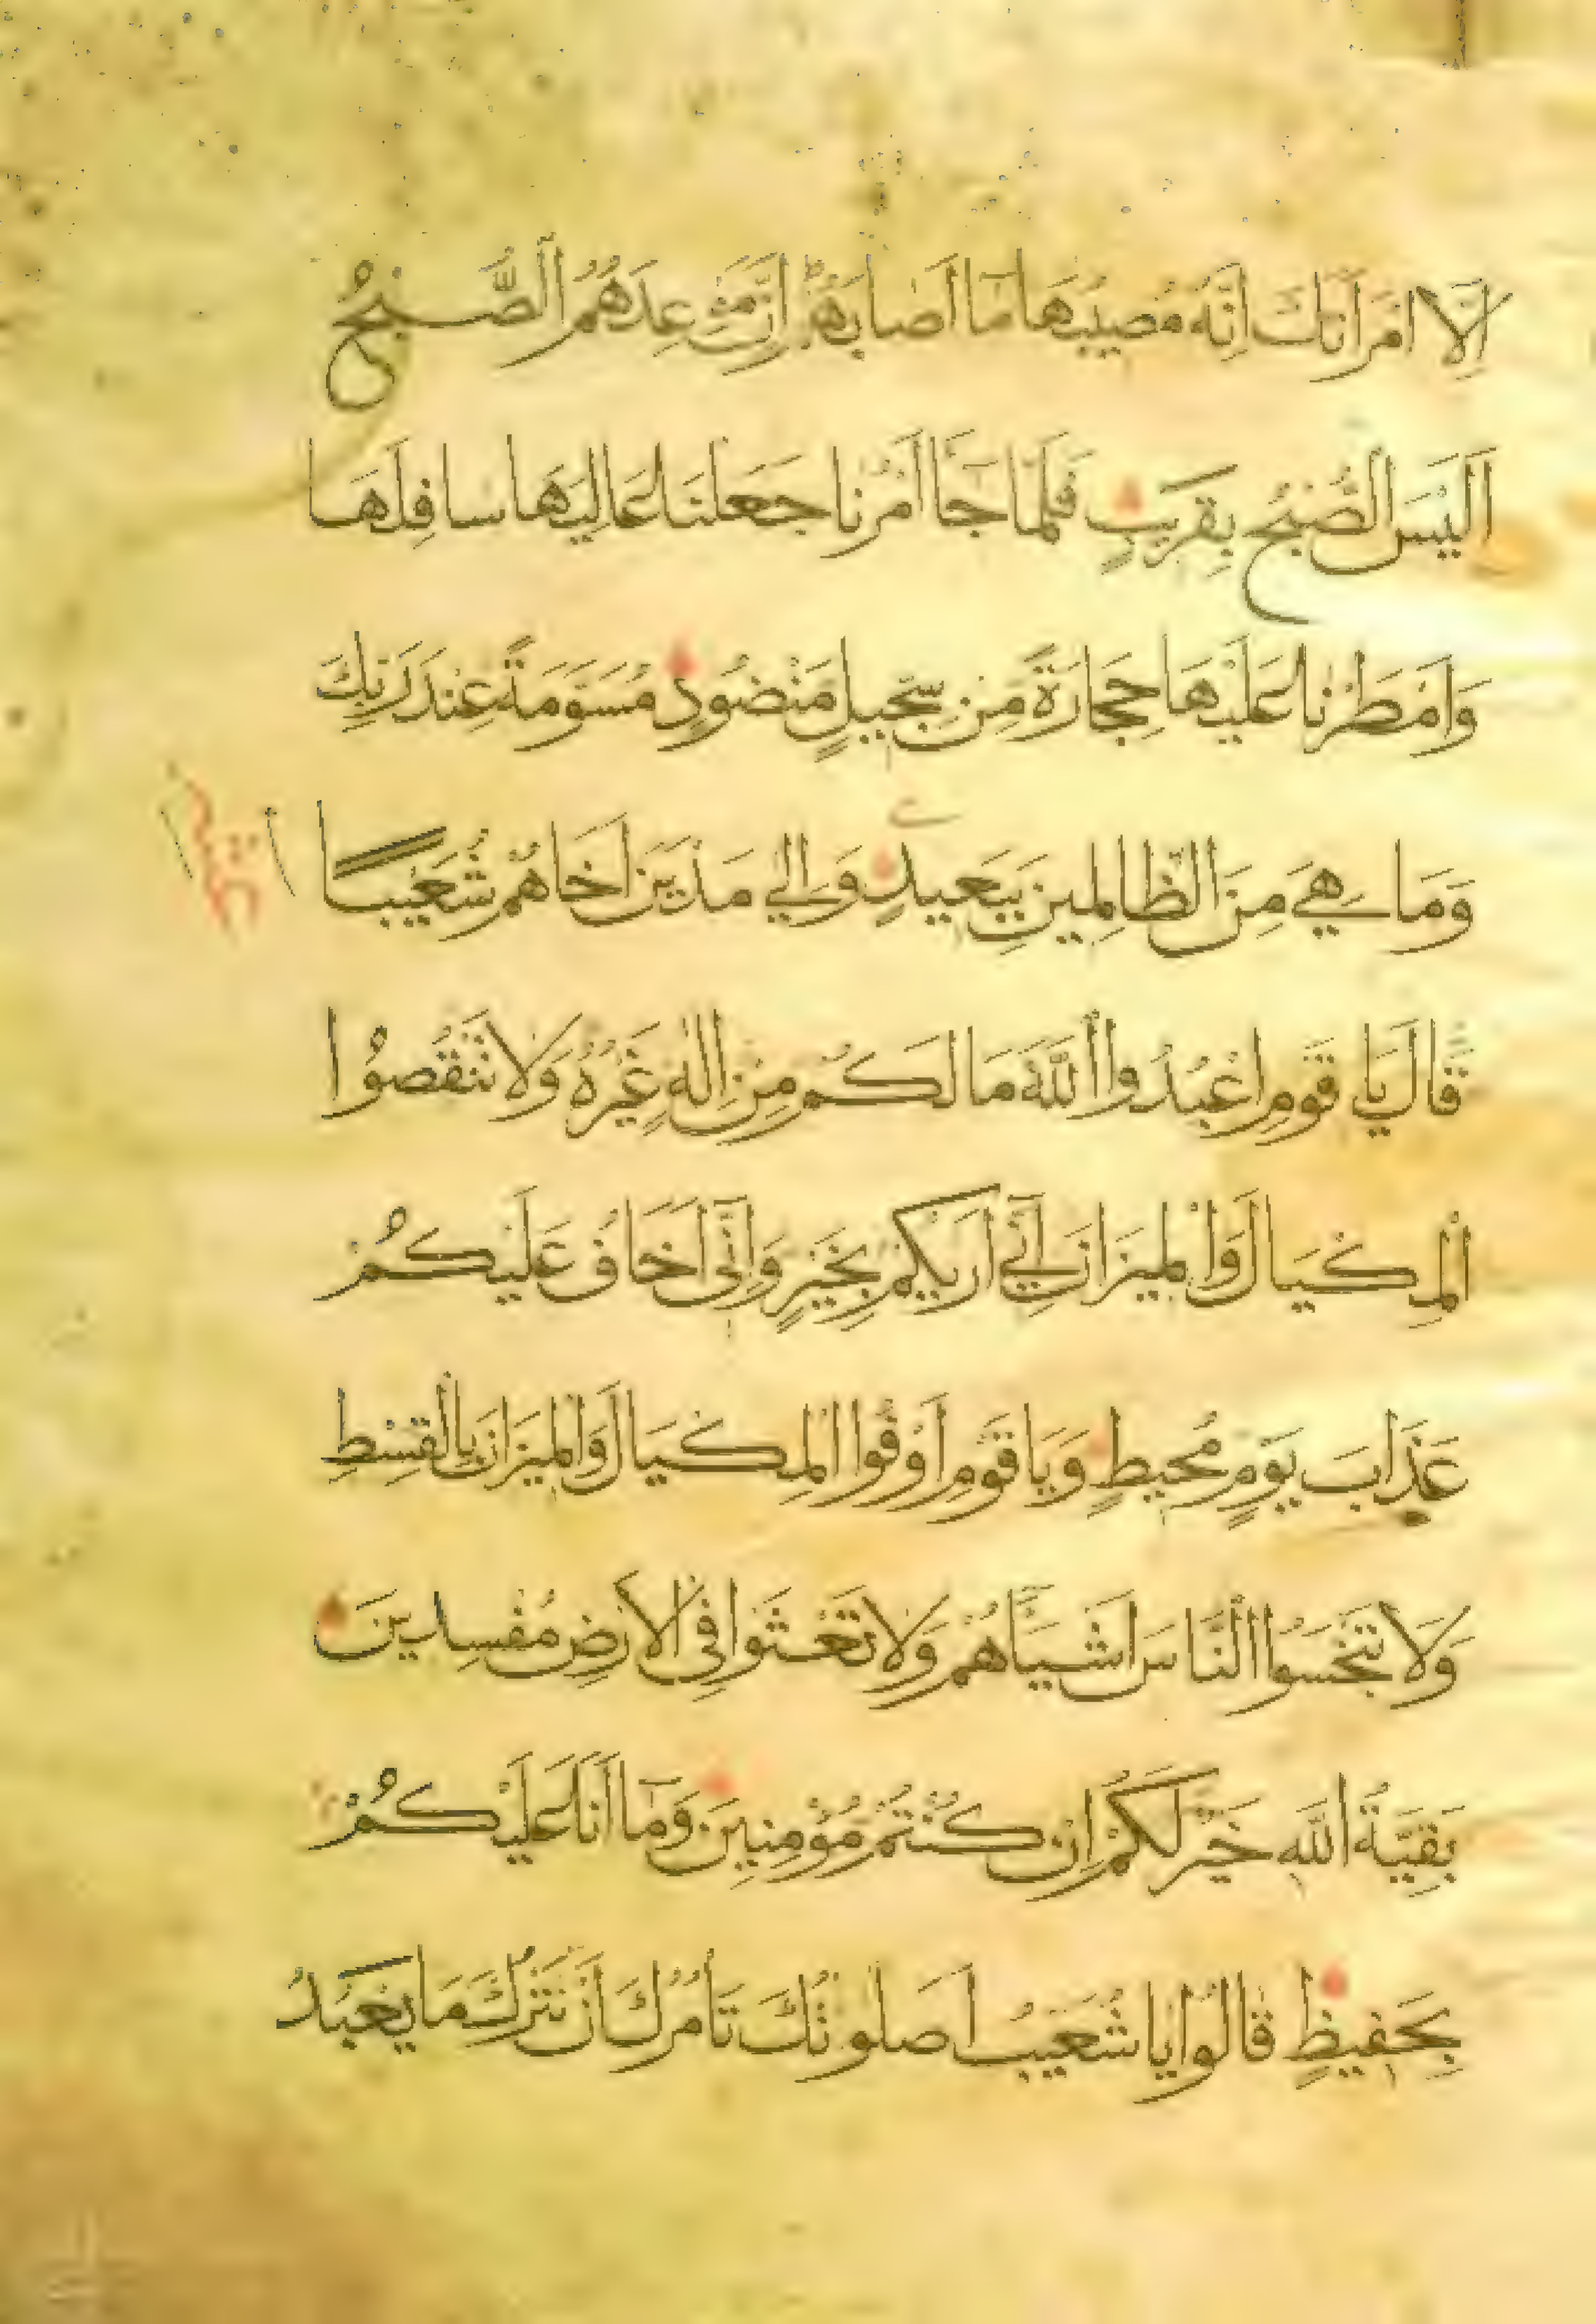 اِلَّا امْرَاَتَكَ اِنَّهُ مُصِيبُهَا مَٓا اَصَابَهُمْ اِنَّ مَوْعِدَهُمُ الصُّبْحُ
اَلَيْسَ الصُّبْحُ بِقَرِيبٍ فَلَمَّا جَٓا اَمْرُنَا جَعَلْنَا عَالِيَهَا سَافِلَهَا
وَاَمْطَرْنَا عَلَيْهَا حِجَارَةً مِنْ سِجِّيلٍ مَنْضُودٍ مُسَوَّمَةً عِنْدَ رَبِّكَ
وَمَا هِيَ مِنَ الظَّالِمِينَ بِبَعِيدٍ وَاِلٰي مَدْيَنَ اَخَاهُمْ شُعَيْبًا
قَالَ يَا قَوْمِ اعْبُدُوا اللّٰهَ مَا لَكُمْ مِنْ اِلٰهٍ غَيْرُهُ وَلَا تَنْقُصُوا
الْمِكْيَالَ وَالْمِيزَانَ اِنِّٓي اَرٰيكُمْ بِخَيْرٍ وَاِنِّٓى اَخَافُ عَلَيْكُمْ
عَذَابَ يَوْمٍ مُحِيطٍ وَيَا قَوْمِ اَوْفُوا الْمِكْيَالَ وَالْمِيزَانَ بِالْقِسْطِ
وَلَا تَبْخَسُوا النَّاسَ اَشْيَٓاَهُمْ وَلَا تَعْثَوْا فِى الْاَرْضِ مُفْسِدِينَ
بَقِيَّةُ اللّٰهِ خَيْرٌ لَكُمْ اِنْ كُنْتُمْ مُؤْمِنِينَ وَمَٓا اَنَا عَلَيْكُمْ
بِحَفِيظٍ قَالُوا يَا شُعَيْبُ اَصَلٰوتُكَ تَأْمُرُكَ اَنْ نَتْرُكَ مَا يَعْبُدُ